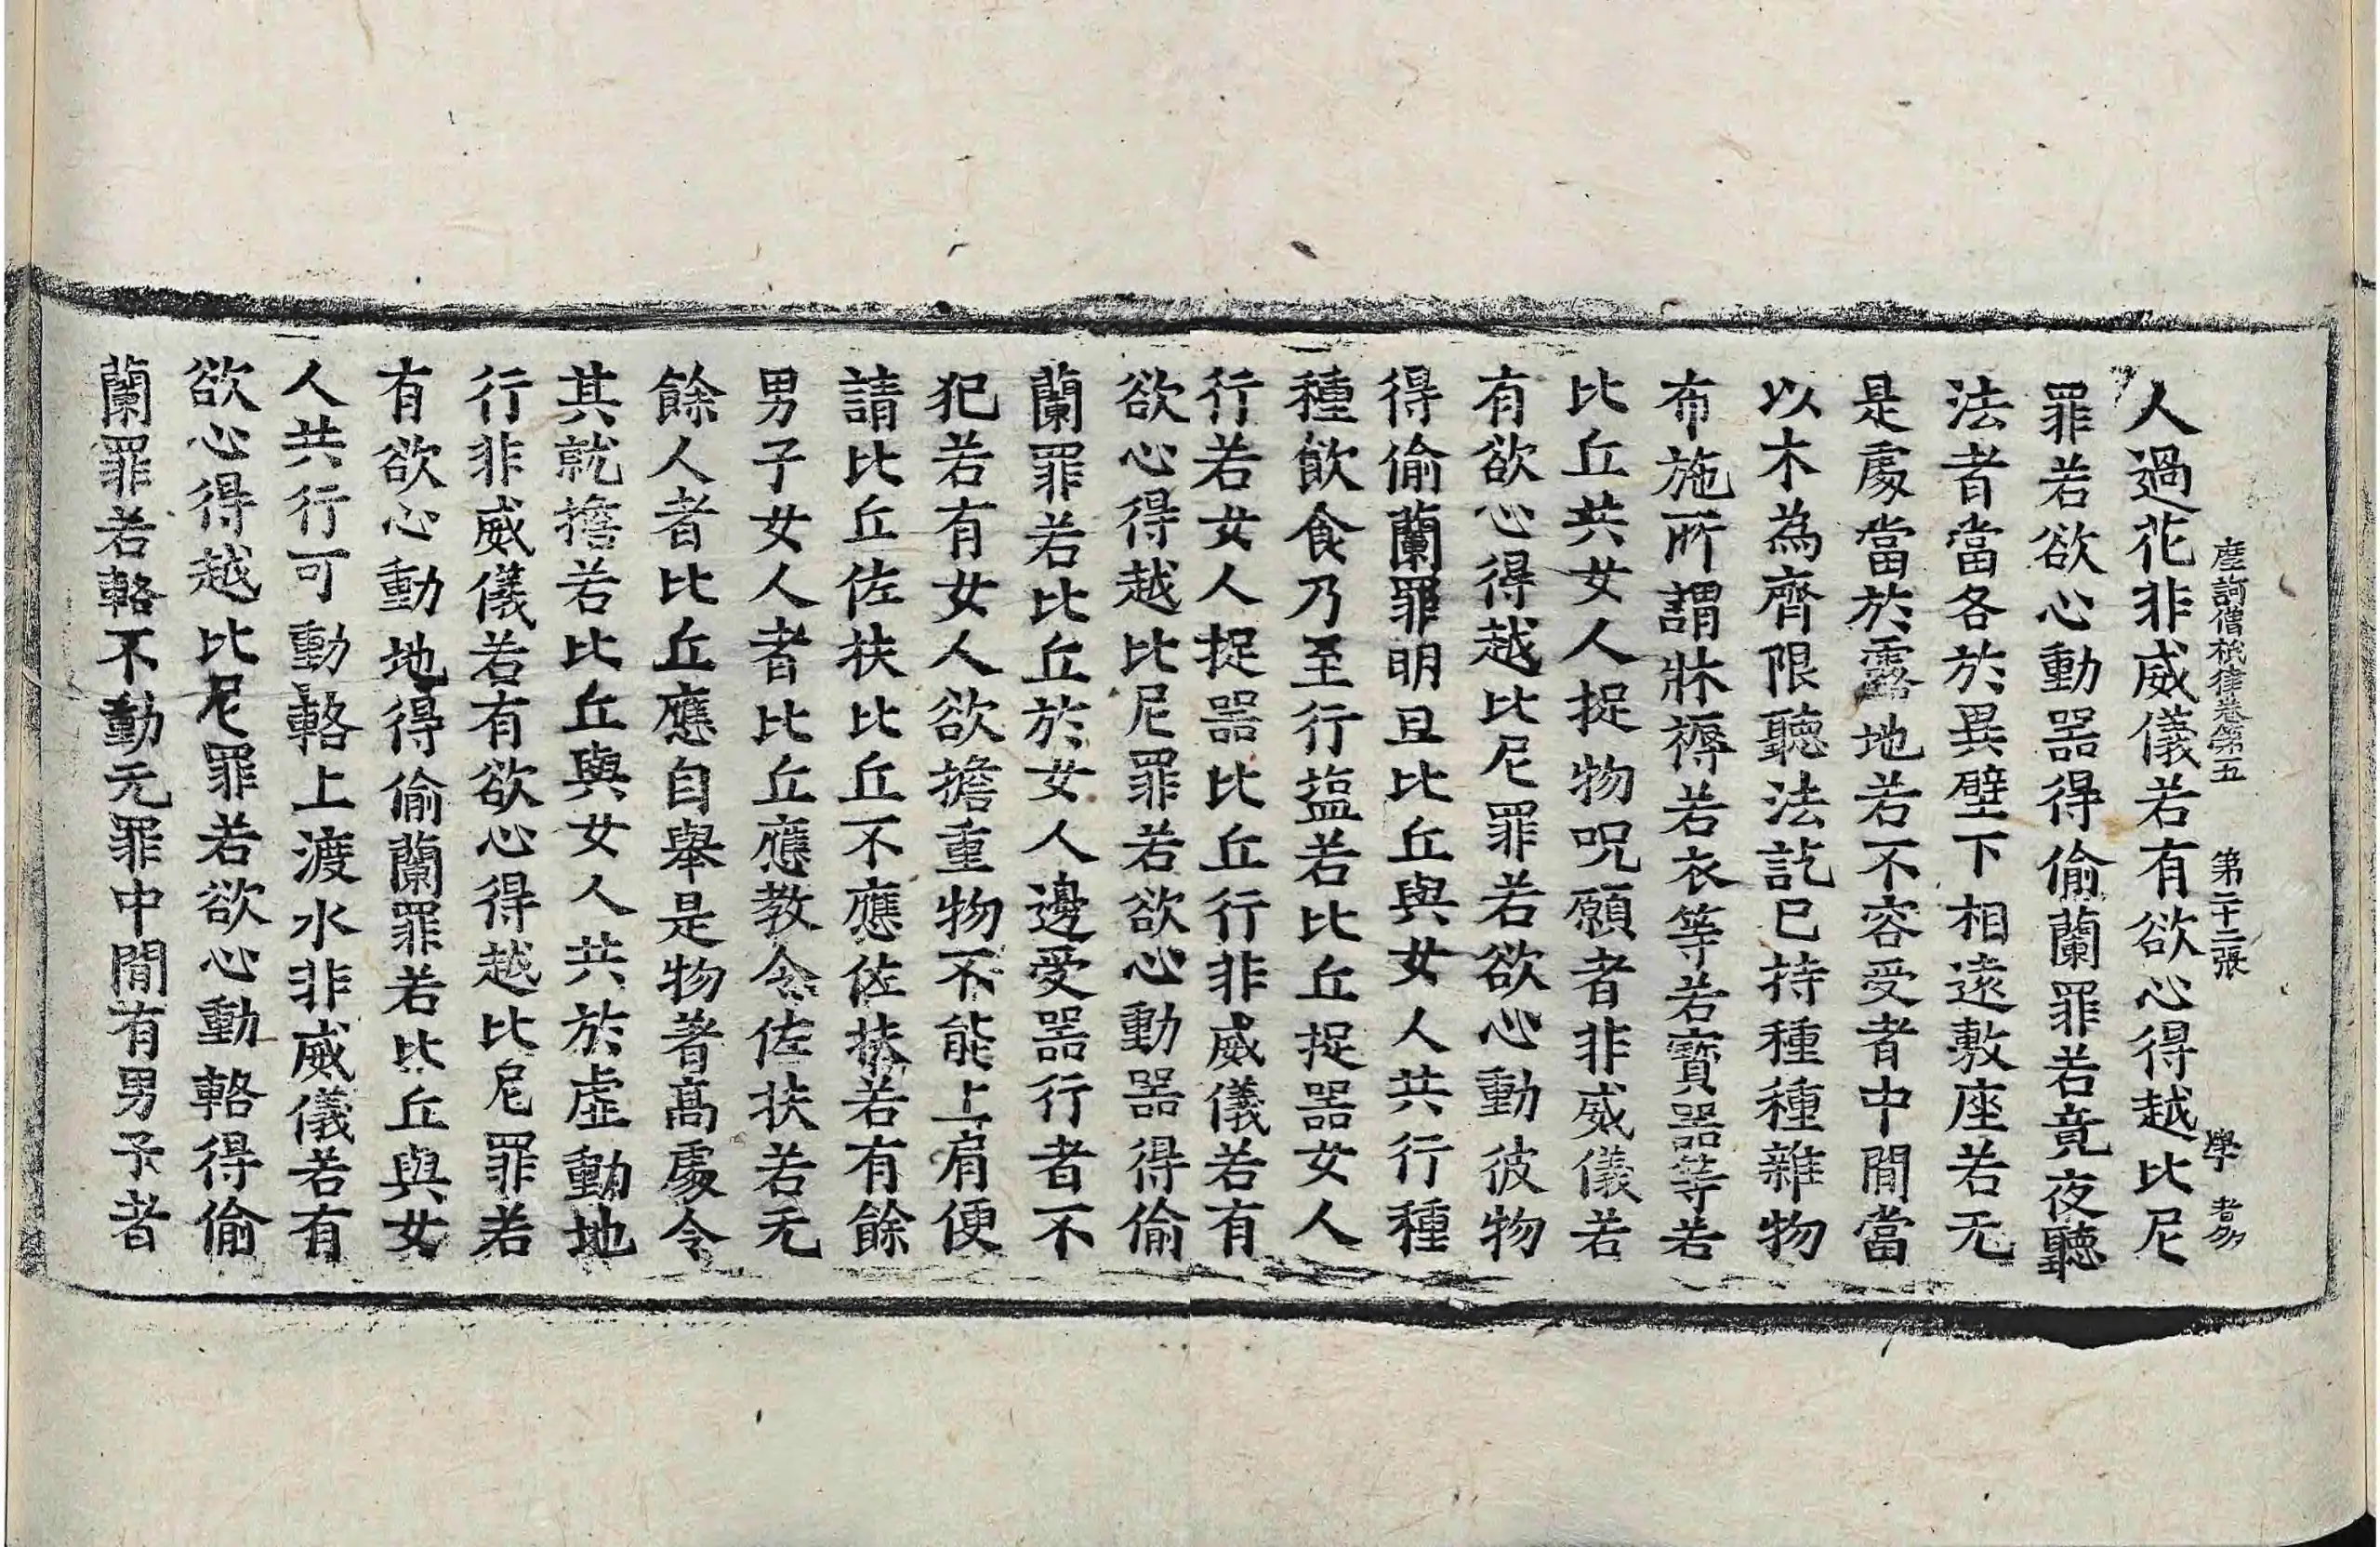 摩訶僧祇律卷第五 第二十二張 學
人過花非威儀若有欲心得越比尼
罪若欲心動器得偷蘭罪若竟夜聽
法者當各於異壁下相遠敷座若无
是處當於露地若不容受者中間當
以木為齊限聽法訖已持種種雜物
布施所謂牀褥若衣等若寶器等若
比丘共女人捉物呪願者非威儀若
有欲心得越比尼罪若欲心動彼物
得偷蘭罪明旦比丘與女人共行種
種飲食乃至行盐若比丘捉器女人
行若女人捉器比丘行非威儀若有
欲心得越比尼罪若欲心動器得偷
蘭罪若比丘於女人邊受器行者不
犯若有女人欲擔重物不能上肩便
請比丘佐扶比丘不應佐扶若有餘
男子女人者比丘應教令佐扶若无
餘人者比丘應自舉是物著高處令
其就擔若比丘與女人共於虛動地
行非威儀若有欲心得越比尼罪若
有欲心動地得偷蘭罪若比丘與女
人共行可動輅上渡水非威儀若有
欲心得越比尼罪若欲心動輅得偷
蘭罪若輅不動无罪中間有男子者